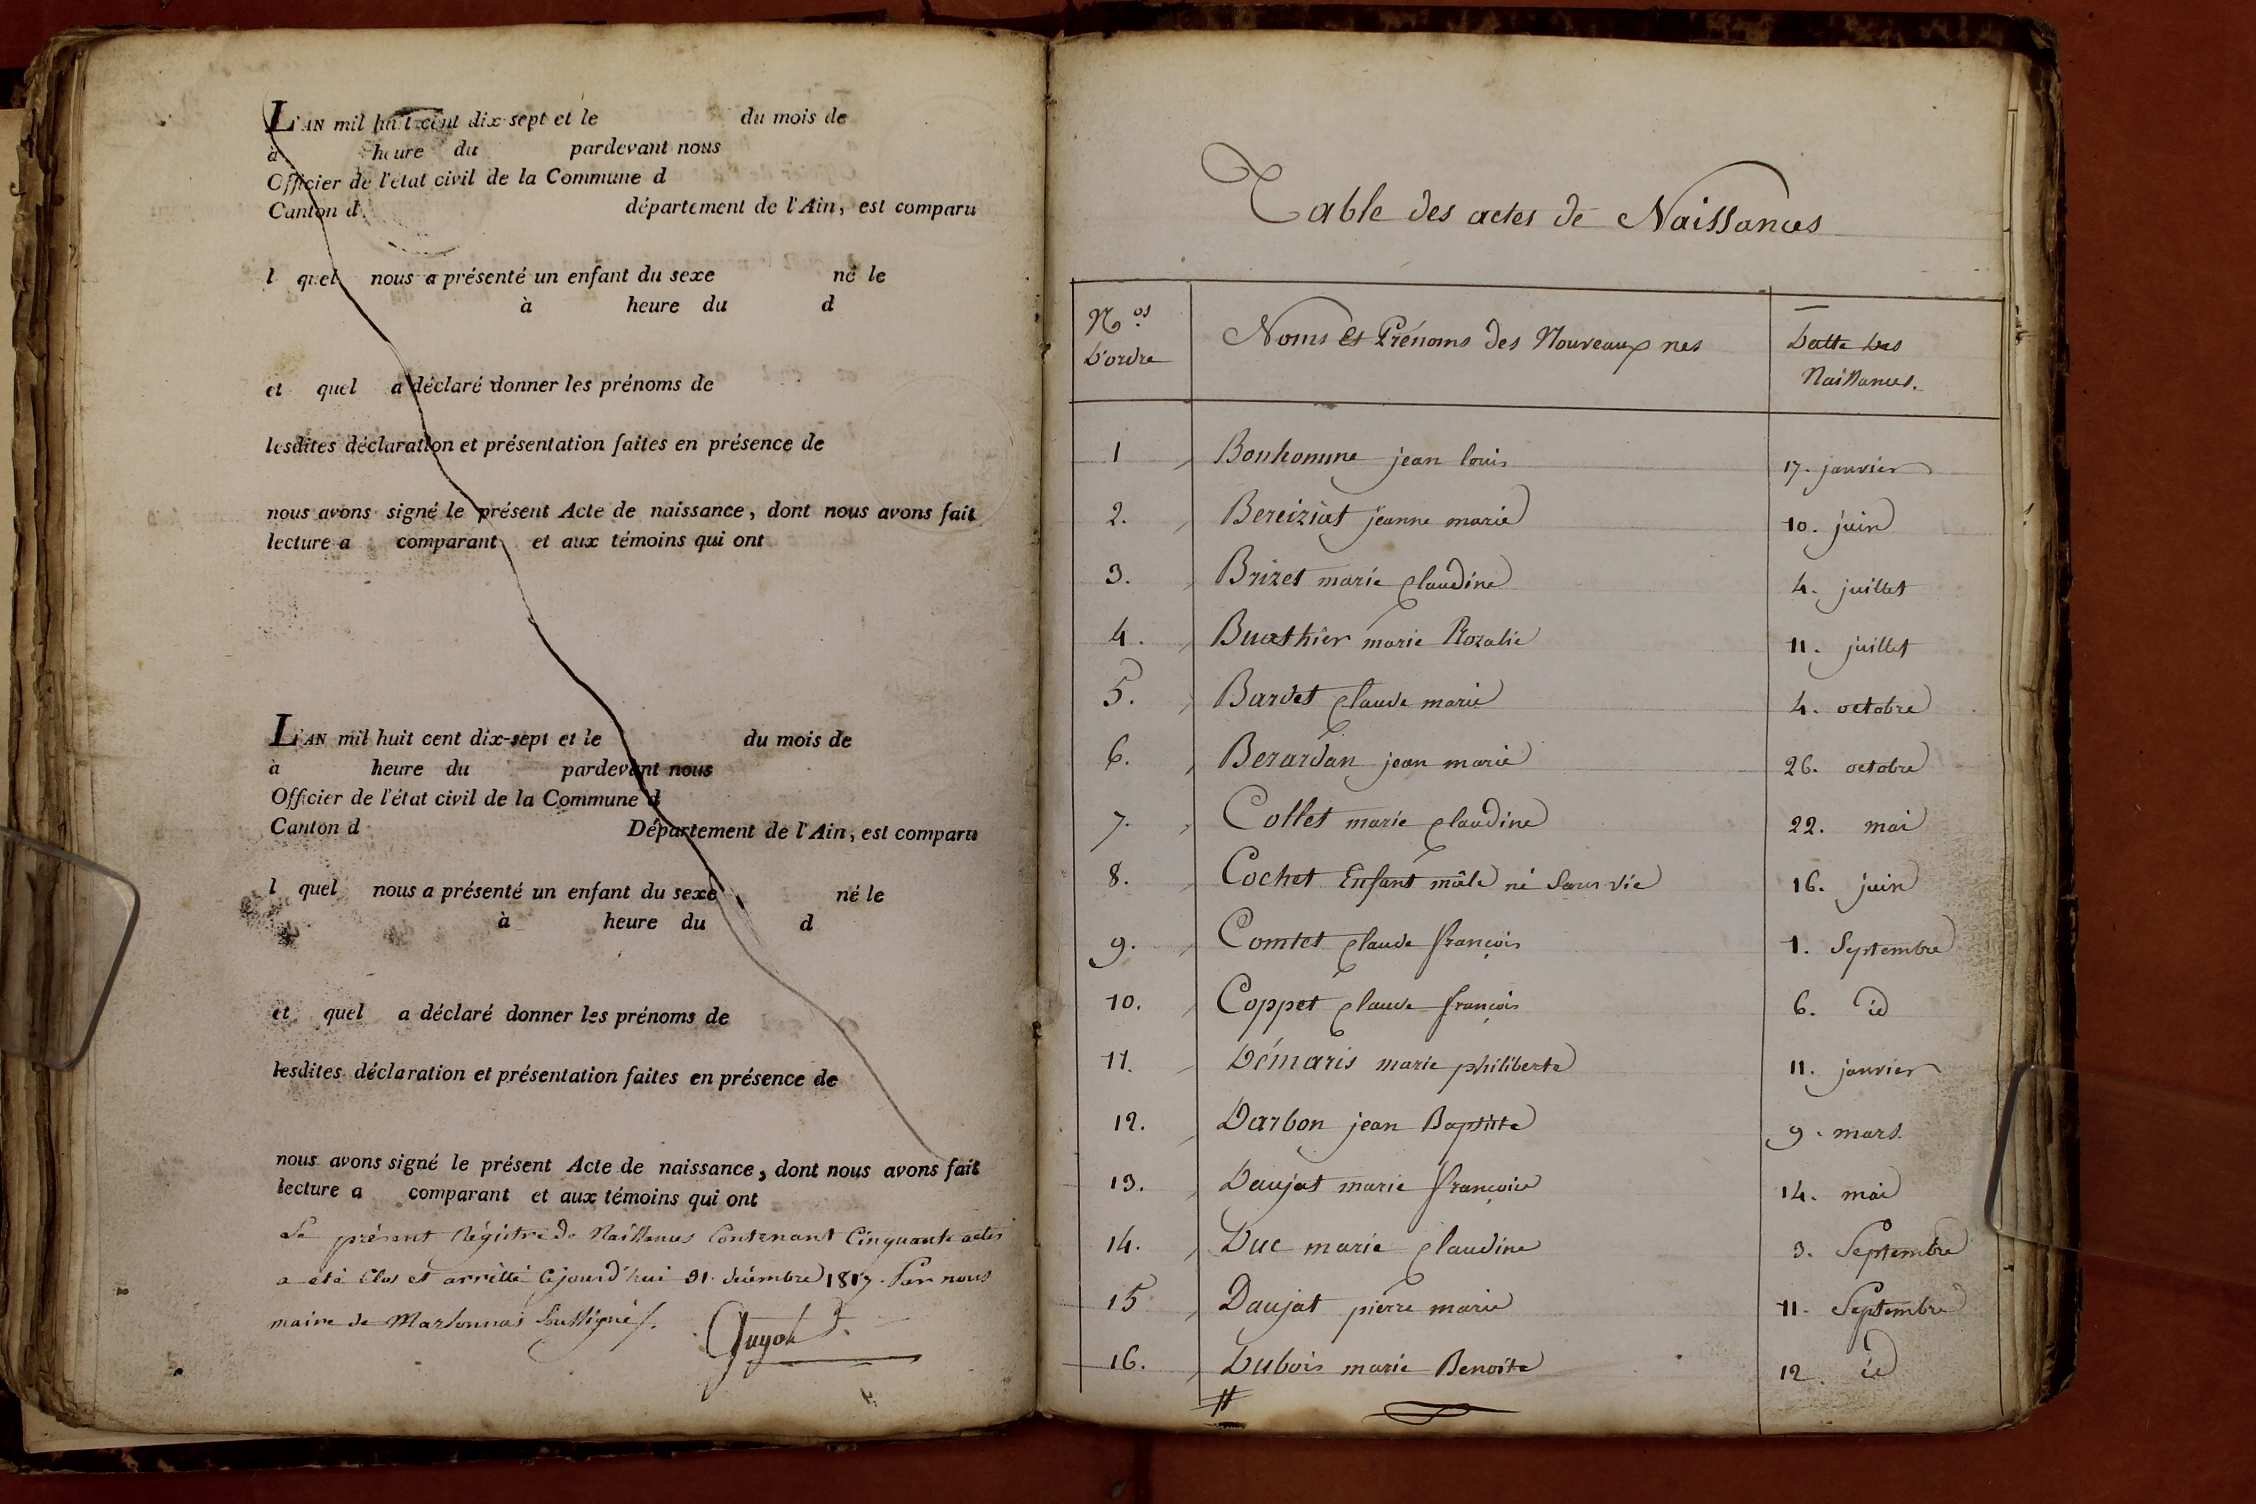 L'AN mil huit cent dix-sept et le du mois de
à heure du pardevant nous
Officier de l'etat civil de la Commune d
Canton d département de l'Ain, est comparu
l quel nous a présenté un enfant du sexe né le
à heure du d
et quel a déclaré donner les prénoms de
lesdites déclaration et présentation faites en présence de
nous avons signé le présent Acte de naissance, dont nous avons fait
lecture a comparant et aux témoins qui ont
L'AN mil huit cent dix-sept et le du mois de
à heure du pardevant nous
Officier de l'état civil de la Commune d
Canton d Département de l'Ain, est comparu
l quel nous a présenté un enfant du sexe né le
à heure du d
et quel a déclaré donner les prénoms de
lesdites déclaration et présentation faites en présence de
nous avons signé le présent Acte de naissance, dont nous avons fait
lecture a comparant et aux témoins qui ont
Le présent Régistre de Naissances Contenant Cinquante actes
a été Clos et arretté Cejourd'hui 31. décembre 1817. Par nous
maire de Marsonnas Soussigné.
Guyot
Table des actes de Naissances
N.os D'ordre Noms Et Prénoms des Nouveaux nes Datte des Naissances.
1 Bonhomme jean louis 17. janvier
2. Bereiziat jeanne marie 10. juin
3. Brizet marie Claudine 4. juillet
4. Buathier marie Rozalie 11. juillet
5. Bardet Claude marie 4. octobre
6. Berardan jean marie 26. octobre
7. Collet marie Claudine 22. mai
8. Cochet Enfant mâle né Sans vie 16. juin
9. Comtet Claude françois 1. Septembre
10. Coppet Claude françois 6. id
11. Démaris marie philiberte 11. janvier
12. Darbon jean Baptiste 9. mars.
13. Daujat marie françoise 14. mai
14. Duc marie Claudine 3. Septembre
15 Daujat pierre marie 11. Septembre
16. Dubois marie Benoite 12. id